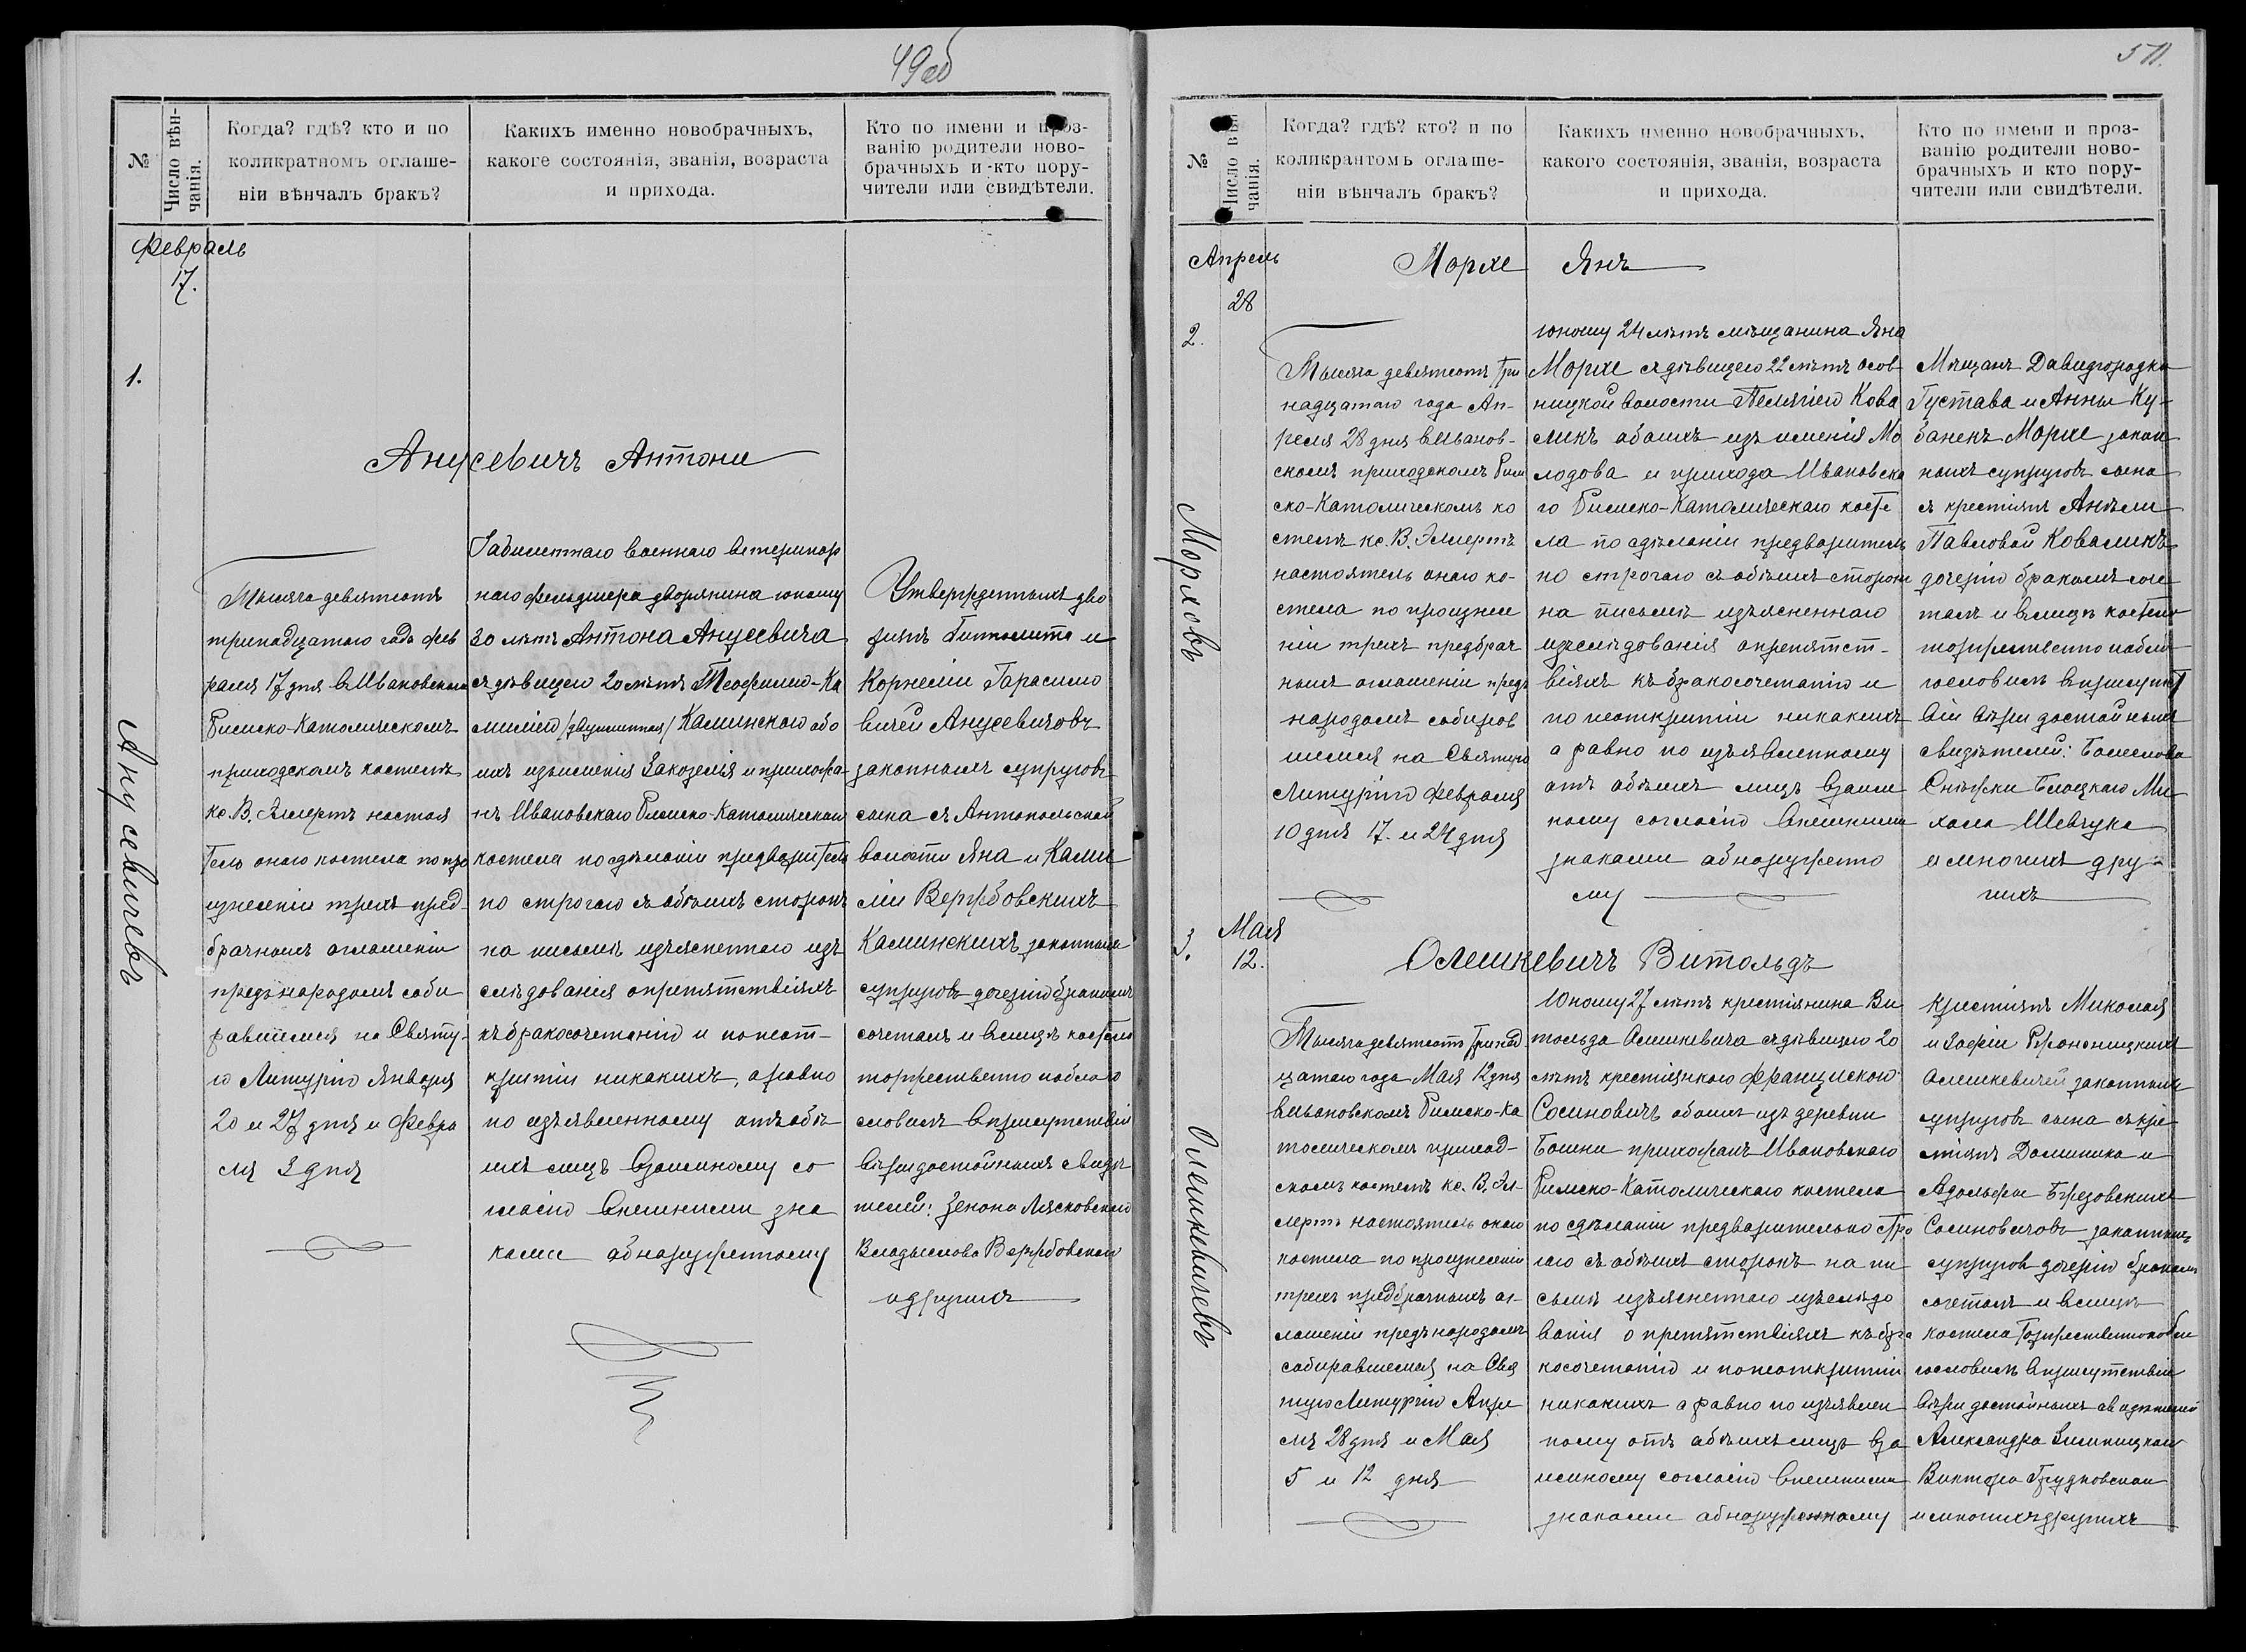 49об
№
Число вѣн-
чанія.
Когда? гдѣ? кто и по
коликратномъ оглаше-
ніи вѣнчалъ бракъ?
Какихъ именно новобрачныхъ,
какого состоянія, званія, возраста
и прихода.
Кто по имени и проз-
ванію родители ново-
брачныхъ и кто пору-
чители или свидѣтели.
Февраль
17.
1.
Анусевичъ Антони
Анусевичевъ
Тысяча девятьсотъ
тринадцатого года фев
раля 17 дня в Ивановском
Римско-Католическомъ
приходскомъ костелѣ
кс. В. Эллертъ настоя
тель оного костела по про
изнесеніи трехъ пред-
брачныхъ оглашеніи
предъ народомъ соби
равшемся на Святу-
ю Литургію Января
20 и 27 дня и Февра
ля 3 дня
Забилетнаго военнаго ветеринар
наго фельдшера дворянина юношу
30 лѣтъ Антона Анусевича
съ дѣвицею 20 лѣтъ Теофилю-Ка
милію /двуименная/ Калинского обо
ихъ изъ именія Закозелья и прихожа-
нъ Ивановскаго Римско-Католическаго
костела по сдѣланіи предварител
но строгаго съ обѣихъ сторонъ
на письмѣ изъясненнаго изъ
слѣдованія опрепятствіяхъ
къ бракосочетанію и по неот-
крытіи никакихъ, аравно
по изъявленному отъ обѣ
ихъ лицъ взаимному со
гласію внешними зна
ками обнаруженному
Утвержденныхъ дво
рянъ Гипполита и
Корнеліи Гарасимо
вичей Анусевичовъ
законныхъ супруговъ
сына съ Антопольской
волости Яна и Ками
ліи Вержбовскихъ
Калинскихъ законныхъ
супруговъ дочерію бракомъ
сочеталъ и влицѣ костела
торжественно поблаго
словилъ вприсутствіи
вѣры достойныхъ свидѣ
телей: Зенона Лясковского
Владыслова Вержбовского
идругихъ
511.
№
Число вѣн
чанія.
Когда? гдѣ? кто? и по
коликрантомъ оглаше-
ніи вѣнчалъ бракъ?
Какихъ именно новобрачныхъ,
какого состоянія, званія, возраста
и прихода.
Кто по имени и проз-
ванію родители ново-
брачныхъ и кто пору-
чители или свидѣтели.
Апрель
28
2.
Морхе Янъ
Морховъ
Тысяча девятьсотъ три
надцатого года Ап-
реля 28 дня вИванов-
скомъ приходскомъ Рим
ско-Католическомъ ко
стелѣ кс. В. Эллертъ
настоятель оного ко-
стела по произнесе
ніи трехъ предбрач
ныхъ оглашеніи предъ
народомъ собирав
шемся на Святую
Литургію Февраля
10 дня 17. и 24 дня
юношу 24 лѣтъ мѣщанина Яна
Морхе съ дѣвицею 22 лѣтъ Осов
ницкой волости Пелягіею Кова
ликъ обоихъ изъ именія Мо
лодова и прихода Ивановска
го Римско-Католическаго косте
ла по сдѣланіи предварителъ
но строгаго съ обѣихъ сторонъ
на письмѣ изъясненнаго
изслѣдованія опрепятст-
віяхъ къ бракосочетанію и
по неоткрытіи никакихъ
а равно по изъявленному
отъ обѣихъ лицъ взаим
ному согласію внешними
знаками обнаруженно
му
Мѣщанъ Давидгородка
Густава и Анны Ку-
банекъ Морхе закон
ныхъ супруговъ сына
съ крестіянъ Анѣли
Павловой Коваликъ
дочерію бракомъ соче
талъ и влицѣ костела
торжественно побла
гословилъ вприсутст
віи вѣры достойныхъ
свидѣтелей: Болеслава
Снѣжки Блоцкаго Ми
хала Шевчука
и многихъ дру-
гихъ
3.
Мая
12.
Олешкевичъ Витольдъ
Олешкевичевъ
Тысяча девятьсотъ тринад
цатаго года Мая 12 дня
вИвановскомъ Римско-Ка
толическомъ приход-
скомъ костелѣ кс. В. Эл-
лертъ настоятель оного
костела по произнесеніи
трехъ предбрачныхъ ог-
лашеніи предъ народомъ
собиравшемся на Свя
тую Литургію Апре
ля 28 дня и Мая
5 и 12 дня
Юношу 27 лѣтъ крестіянина Ви
тольда Олешкевича съ дѣвицею 20
лѣтъ крестіянкою Францискою
Сосиновичъ обоихъ изъ деревни
Бошни прихожанъ Ивановского
Римско-Католическаго костела
по сдѣланіи предварительно стро
гаго съ обѣихъ сторонъ на пи
сьмѣ изъясненнаго изъслѣдо
ванія о препятствіяхъ къ бра
косочетанію и по неоткрытіи
никакихъ а равно по изъявлен
ному отъ обѣихъ лицъ вза
имному согласію внешними
знаками обнаруженному
Крестіянъ Миколая
и Зофіи
Олешкевичей законныхъ
супруговъ сына съ кре
стіянъ Доминика и
Адольфы Бржезовскихъ
Сосиновичовъ законныхъ
супруговъ дочерію бракомъ
сочеталъ и влицѣ
костела торжественно побла
гословилъ вприсутствіи
вѣры достойныхъ свидѣтелей
Александра
Виктора Грудковского
и многихъ другихъ